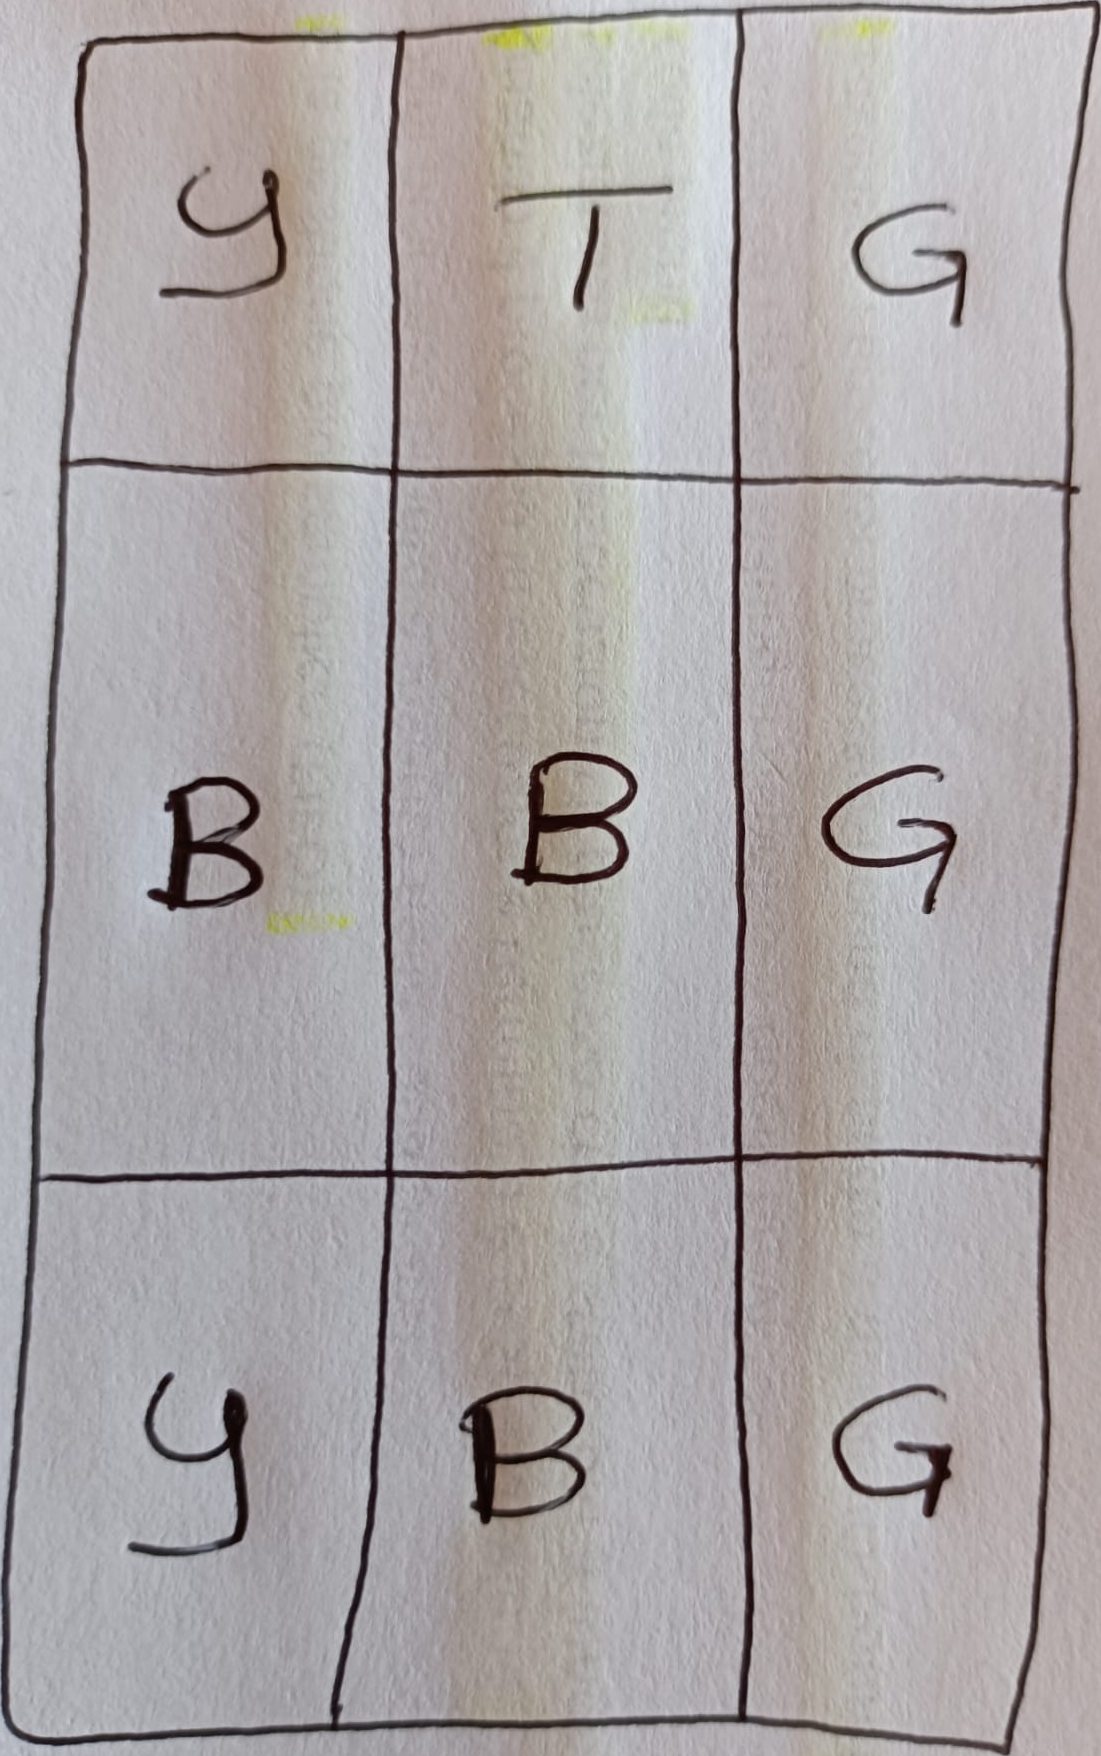 Y T G
B B G
Y B G